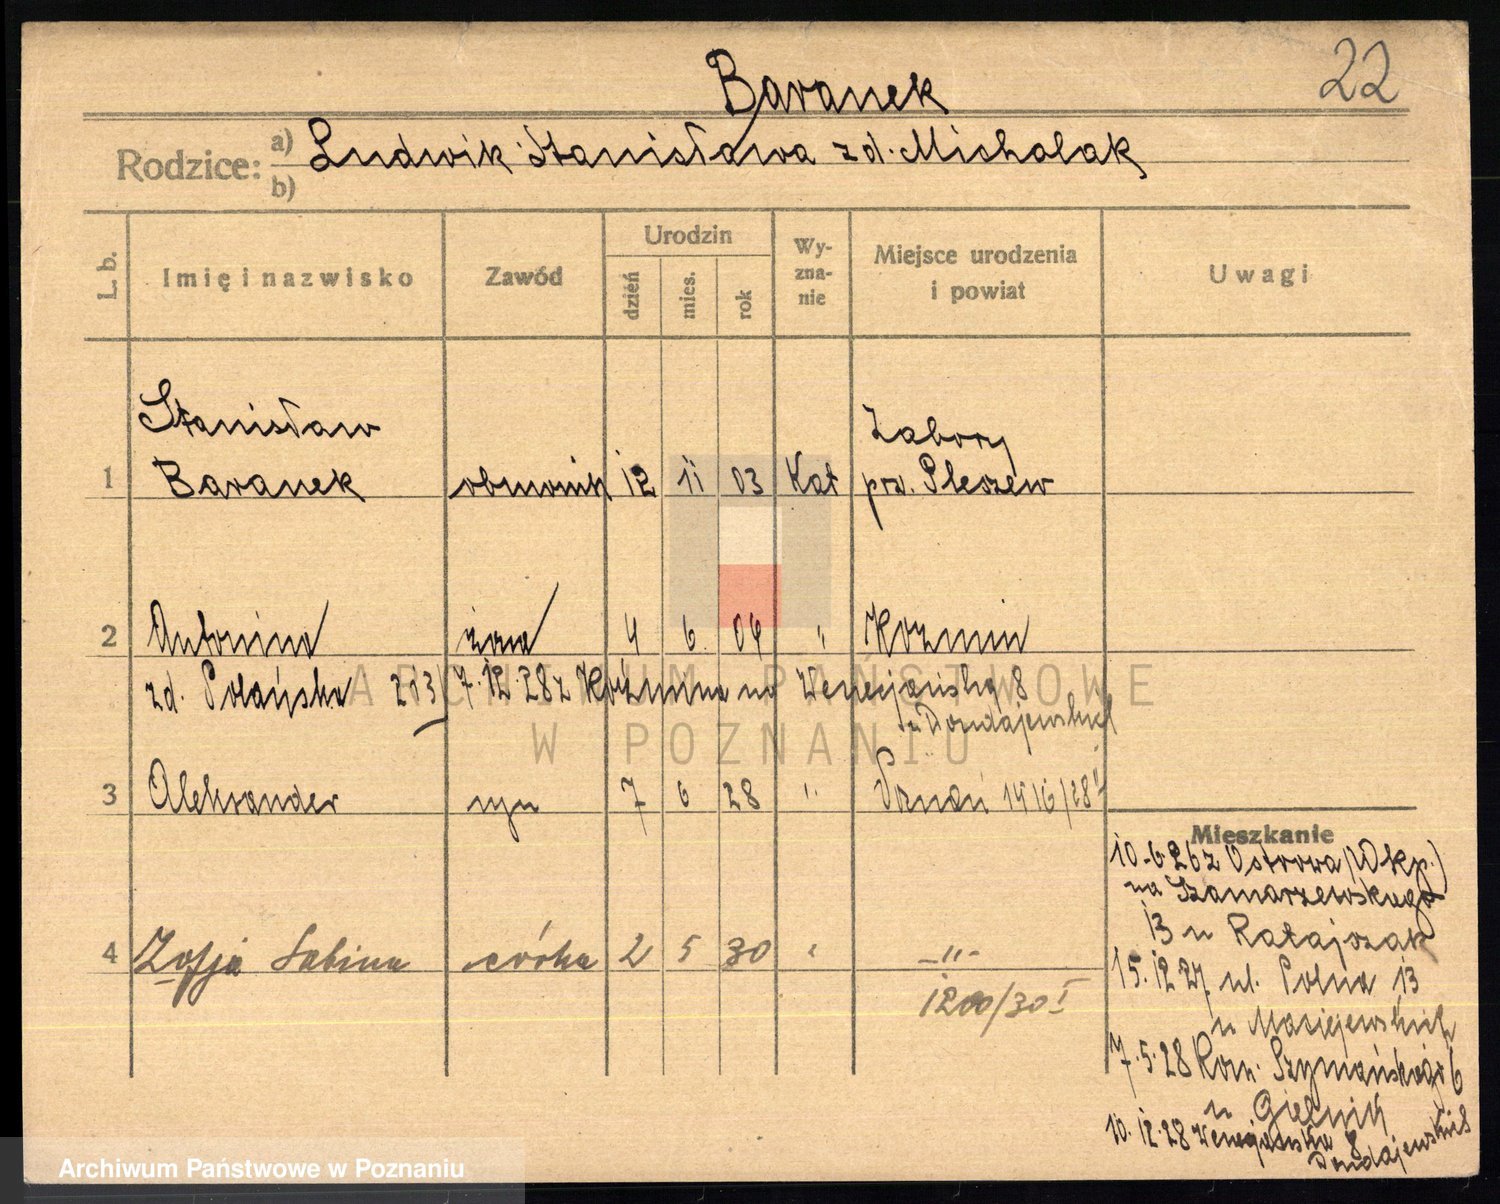 22
Baranek
Rodzice: a) Ludwik Stanisława zd. Michalak
b)
L. b. Imię i nazwisko Zawód Urodzin dzień mies. rok Wyznanie Miejsce urodzenia i powiat Uwagi
Stanisław Zabory
1 Baranek 12 11 03 Kat pow. Pleszew
2 Antonina żona 4 6 04 " Kozmin
zd. Polańska 213/7.12.28 z Koźmina na Wenecjańską 8
u Dondajewskich
3 Aleksander syn 7 6 28 " Poznań 1416/28 I
Mieszkanie
10.6.26 z Ostrowa (Wkp.)
na Szamarzewskiego
13 u Ratajczak
4 Zofja Sabina córka 2 5 30 " -"-
1200/30 I
15.12.27 ul. Polna 13
u Maciejewskich
7.5.28 Rom. Szymańskiego 6
u Gielnik
10.12.28 Wenecjańska 8
Dondajewskich
ARCHIWUM PAŃSTWOWE
W POZNANIU
Archiwum Państwowe w Poznaniu